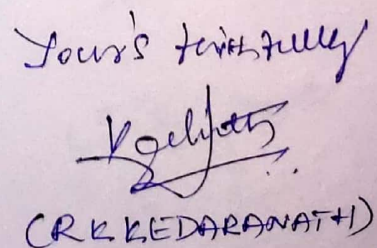 Your's faithfully
(RK KEDARANATH)